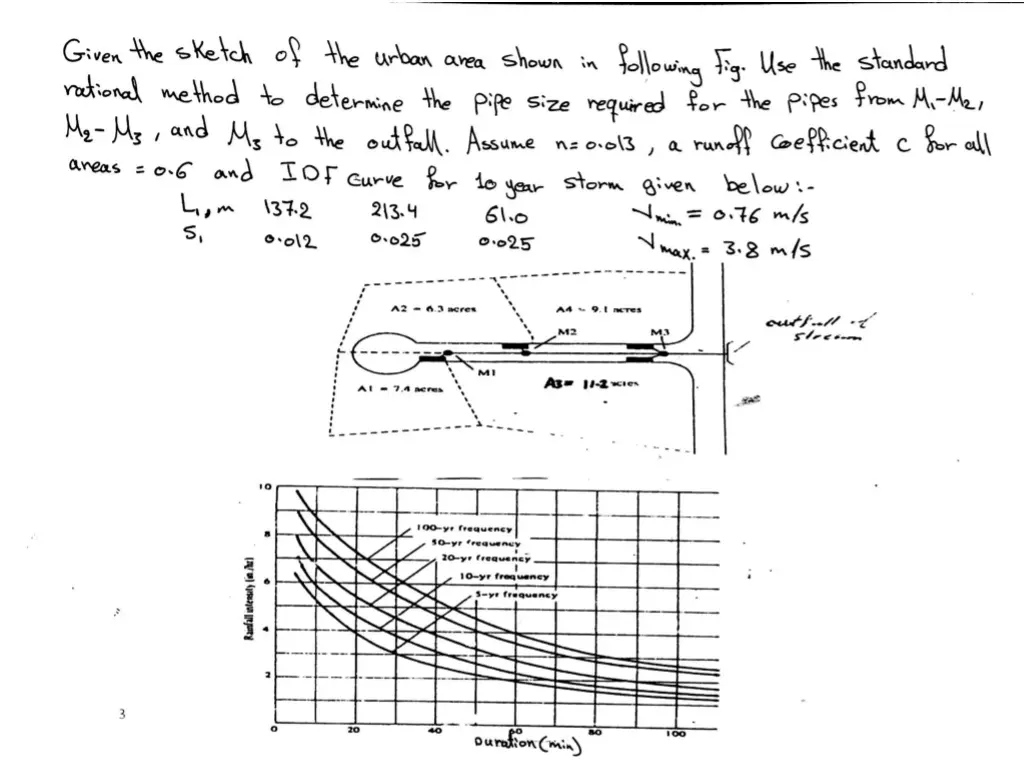 Given the sketch of the urban area shown in following Fig. Use the standard
rational method to determine the pipe size required for the pipes from M1-M2,
M2-M3, and M3 to the outfall. Assume n=0.013, a runoff coefficient c for all
areas = 0.6 and IDF curve for 10 year storm given below:-
L, m 137.2 213.4 61.0 Vmin. = 0.76 m/s
S, 0.012 0.025 0.025 Vmax. = 3.8 m/s
A2 = 6.3 acres A4 = 9.1 acres
outfall of
stream
M2 M3
M1
A1 = 7.4 acres A3= 11.2 acres
10
100-yr frequency
8 50-yr frequency
20-yr frequency
6 10-yr frequency
5-yr frequency
Rainfall intensity (in./hr)
4
2
3
0 20 40 60 80 100
Duration (min)